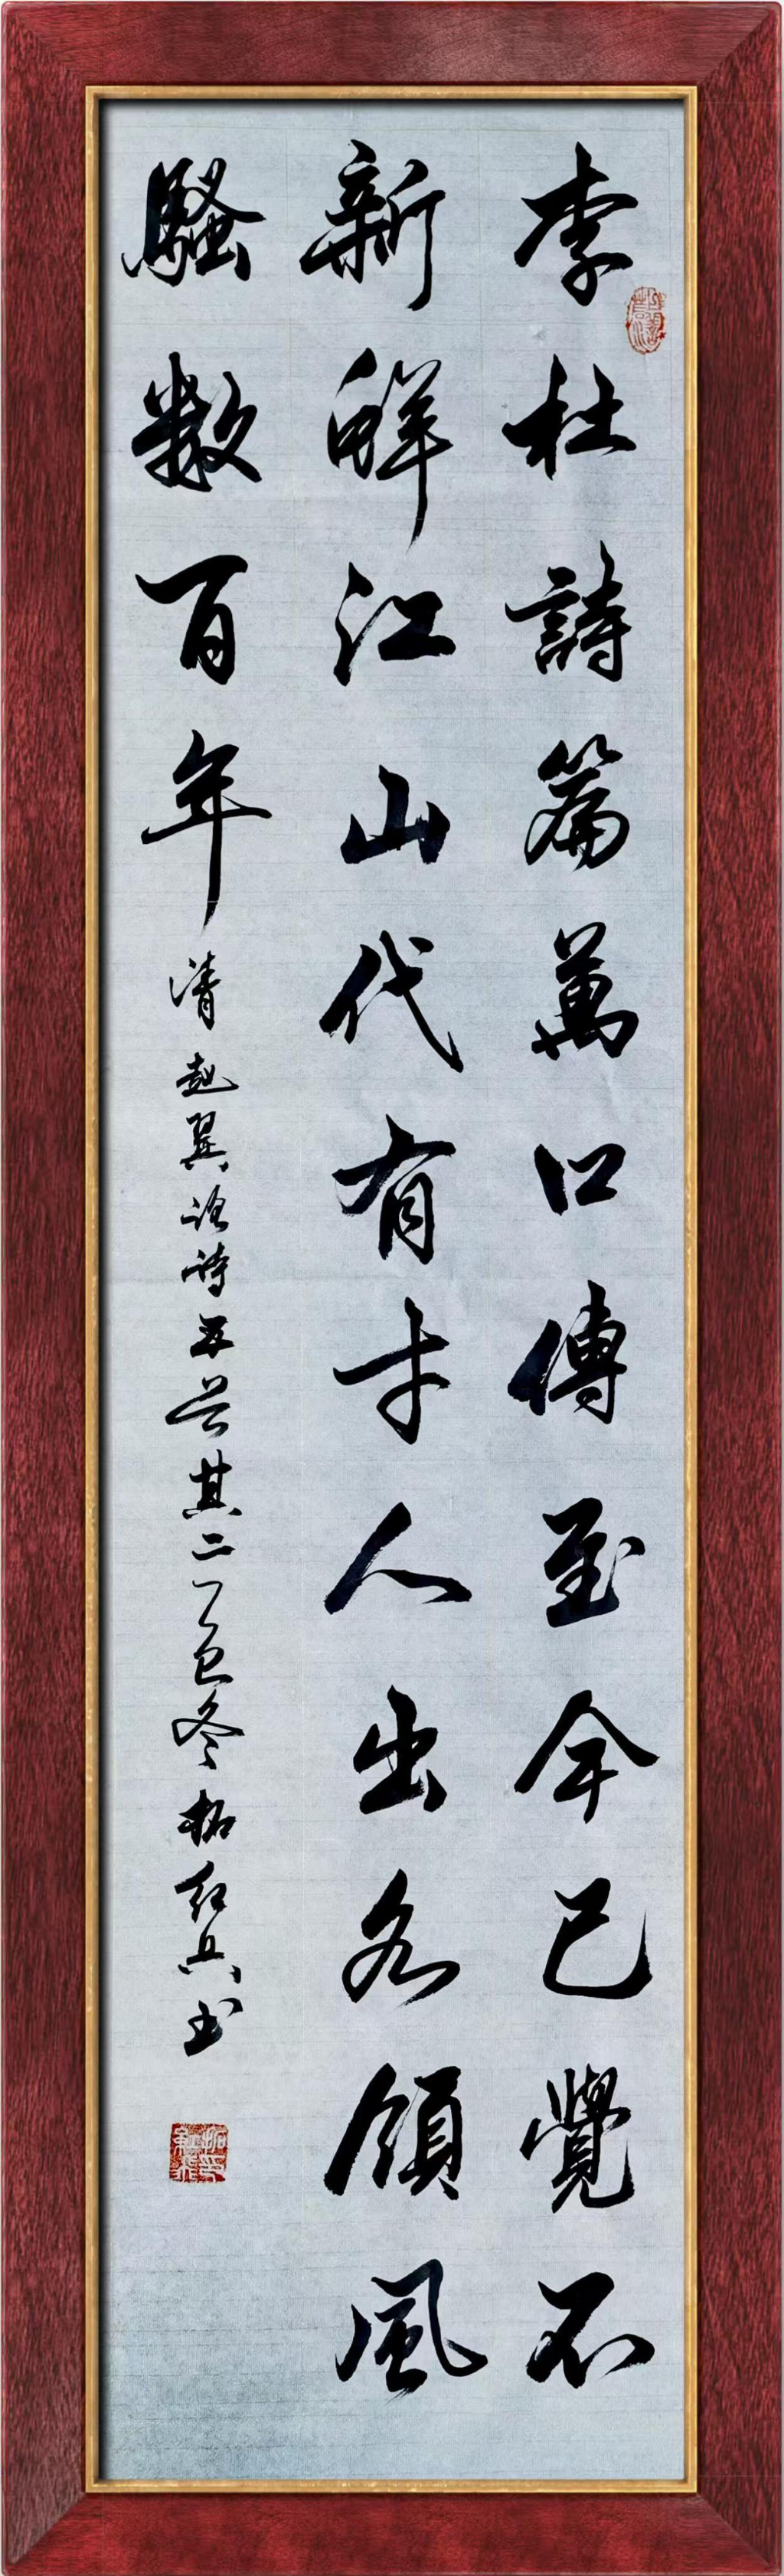 李杜詩篇萬口傳至今已覺不
新鮮江山代有才人出各領風
騷數百年
清趙翼論詩五首其二乙巳冬拓紅兵書